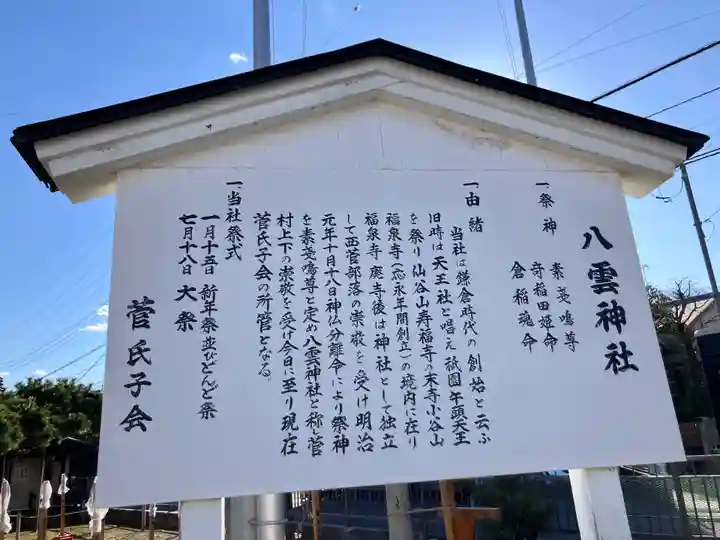 八雲神社
一、祭神
素戔鳴尊
奇稲田姫命
倉稲魂命
一、由緒
当社は鎌倉時代の創始と云ふ
旧時は天王社と唱え祇園牛頭天王
を祭り仙谷山寿福寺の末寺小谷山
福泉寺(応永年間創立)の境内に在り
福泉寺廃寺後は神社として独立
して西菅部落の崇敬を受け明治
元年十月十八日神仏分離令により祭神
を素戔鳴尊と定め八雲神社と称し菅
村上下の崇敬を受け今日に至り現在
菅氏子会の所管となる。
一、当社祭式
一月十五日 新年祭並びどんど祭
七月十八日 大祭
菅氏子会